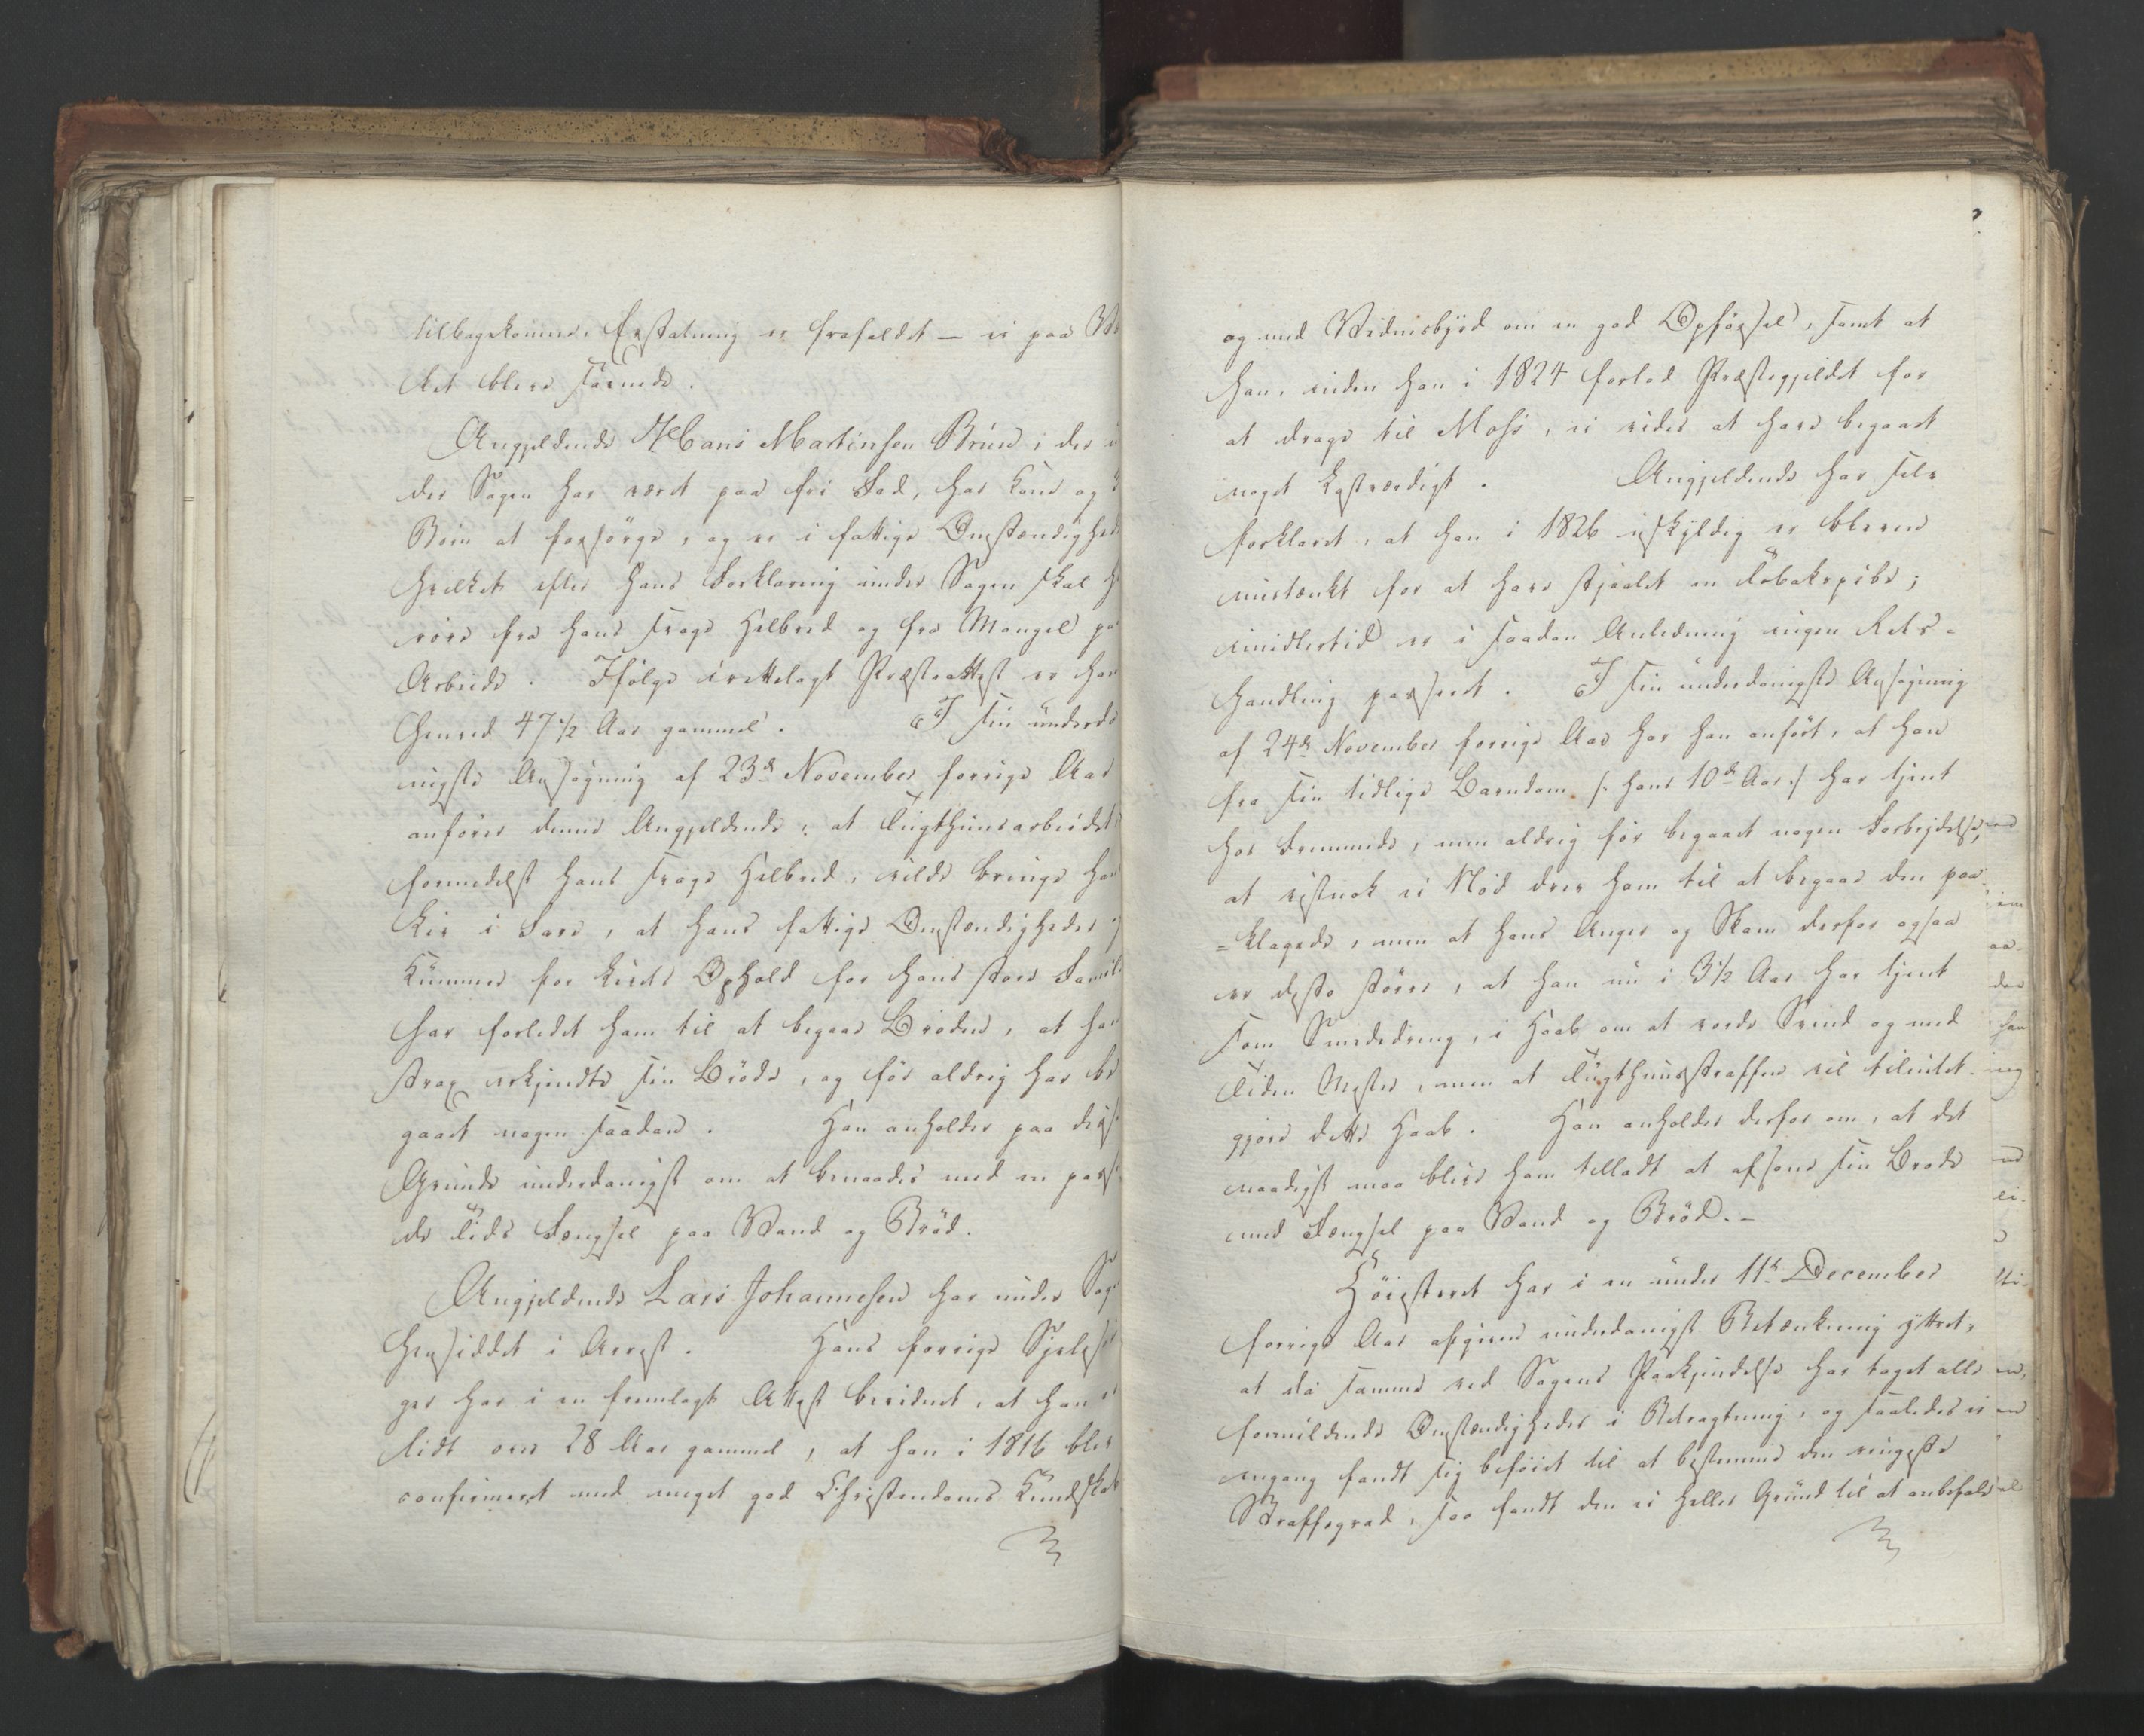 tilbagekomne, Erstatning er frafaldet — ei paa V
ket blive svarende.
Angjeldende Hans Martinsen Brun, der
der Sagen har været paa fri Fod, har Kone og
Børn at forsörge, og er i fattige Omstændighed
hvilket efter hans Forklaring under Sagen skal h
röre fra hans svage Helbred og fra Mangel pa
Arbeide. Ifölge irettelagt Præsteattest er han
henved 47 1/2 Aar gammel. I sin underda
nigste Ansøgning af 23de November forrige Aar
anförer denne Angjeldende, at Tugthuusarbeidet
formedelst hans svage Helbred, vilde bringe hans
Liv i Fare, at hans fattige Omstændigheder
Kummer for Livets Ophold for hans store Famil
har forledet ham til at begaae Bröden, at han
strax erkjendte sin Bröde, og för aldrig har be
gaaet nogen saadan. Han anholder paa diss
Grunde underdanigst om at benaades med en pass
de Tids Fængsel paa Vand og Bröd.
Angjeldende Lars Johannesen har under Sag
hensiddet i Arrest. Hans forrige Sjelesör
ger har i en fremlagt Attest bevidnet, at han
lidt over 28 Aar gammel, at han i 1816 blev
confirmeret med meget god Christendoms Kundskab
og med Vidnesbyrd om en god Opförsel, samt at
han, inden han i 1824 forlod Præstegjeldet for
at drage til Moss, ei vides at have begaaet
noget lastværdigt. Angjeldende har selv
forklaret, at han i 1826 uskyldig er bleven
mistænkt for at have stjaalet en Tobakspibe;
imidlertid er i saadan Anledning ingen Rets-
handling passeret. I sin underdanigste Ansøgning
af 24de November forrige Aar har han anfört, at han
fra sin tidlige Barndom /: hans 10de Aar :/ har tjent
hos Fremmede, men aldrig för begaaet nogen Forbrydelse,
at vistnok ei Nöd drev ham til at begaae den paa-
=klagede, men at hans Anger og Skam derfor ogsaa
er desto större, at han nu i 3 1/2 Aar har tjent
som Smededreng, i Haab om at vorde Svend og med
Tiden Mester, men at Tugthuusstraffen vil tilintet-
gjöre dette Haab. Han anholder derfor om, at det
naadigst maa blive ham tilladt at afsone sin Brøde
med Fængsel paa Vand og Bröd. —
Höiesteret har i en under 11te December
forrige Aar afgiven underdanigst Betænkning yttret,
at da samme ved Sagens Paakjendelse har taget alle
formildende Omstændigheder i Betragtning, og saaledes ei
engang fandt sig beföiet til at bestemme den ringeste
Straffegrad, saa fandt den ei heller Grund til at anbefale